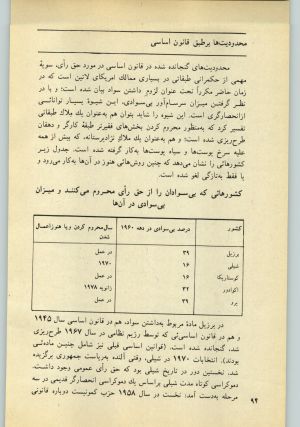 محدودیت‌ها برطبق قانون اساسی
محدودیت‌های گنجانده شده در قانون اساسی در مورد حق رأی، سویهٔ
مهمی از حکمرانی طبقاتی در بسیاری ممالك امریکای لاتین است که در
زمان حاضر مکرراً تحت عنوان لزوم داشتن سواد بیان شده‌است؛ و با در
نظر گرفتن میزان سرسام‌آور بی‌سوادی، این شیوهٔ بسیار توانائی
انحصارگری است. این شیوه را شاید بتوان هم به‌عنوان يك ملاك طبقاتی
تفسیر کرد که به‌منظور محروم کردن بخش‌های فقیرتر طبقهٔ کارگر و دهقان
طرح‌ریزی شده است؛ و هم به‌عنوان يك ملاك نژادپرستانه، که بیش از همه
علیه سرخ پوست‌ها و سیاه پوست‌ها به‌کار گرفته شده است. جدول زیر
کشورهائی را نشان می‌دهد که چنین روش‌هائی هنوز در آن‌ها به‌کار می‌رود و
یا فقط به‌تازگی لغو شده است.
کشورهائی که بی‌سوادان را از حق رأی محروم می‌کنند و میزان
بی‌سوادی در آن‌ها
کشور درصد بی‌سوادی در دهه ۱۹۶۰ سال محروم کردن و یا هنوز اعمال
شدن
برزیل ۳۹ در عمل
شیلی ۱۶ ۱۹۷۰
کوستاریکا ۱۶ در عمل
اکوادور ۳۲ ژانویه ۱۹۷۸
پرو ۳۹ در عمل
در برزیل مادهٔ مربوط به‌داشتن سواد، هم در قانون اساسی سال ۱۹۴۵
و هم در قانون اساسی‌ئی که توسط رژیم نظامی در سال ۱۹۶۷ طرح‌ریزی
شد، گنجانده شده است. (قوانین اساسی قبلی نیز شامل چنین ماده‌ئی
بودند). انتخابات ۱۹۷۰ در شیلی، وقتی آلنده به‌ریاست جمهوری برگزیده
شد، نخستین دور در تاریخ شیلی بود که حق رأی عمومی وجود داشت.
دموکراسی کوتاه مدت شیلی براساس يك دموکراسی انحصارگر قدیمی در سه
مرحله به‌دست آمد: نخست در سال ۱۹۵۸ حزب کمونیست دوباره قانونی
۹۴